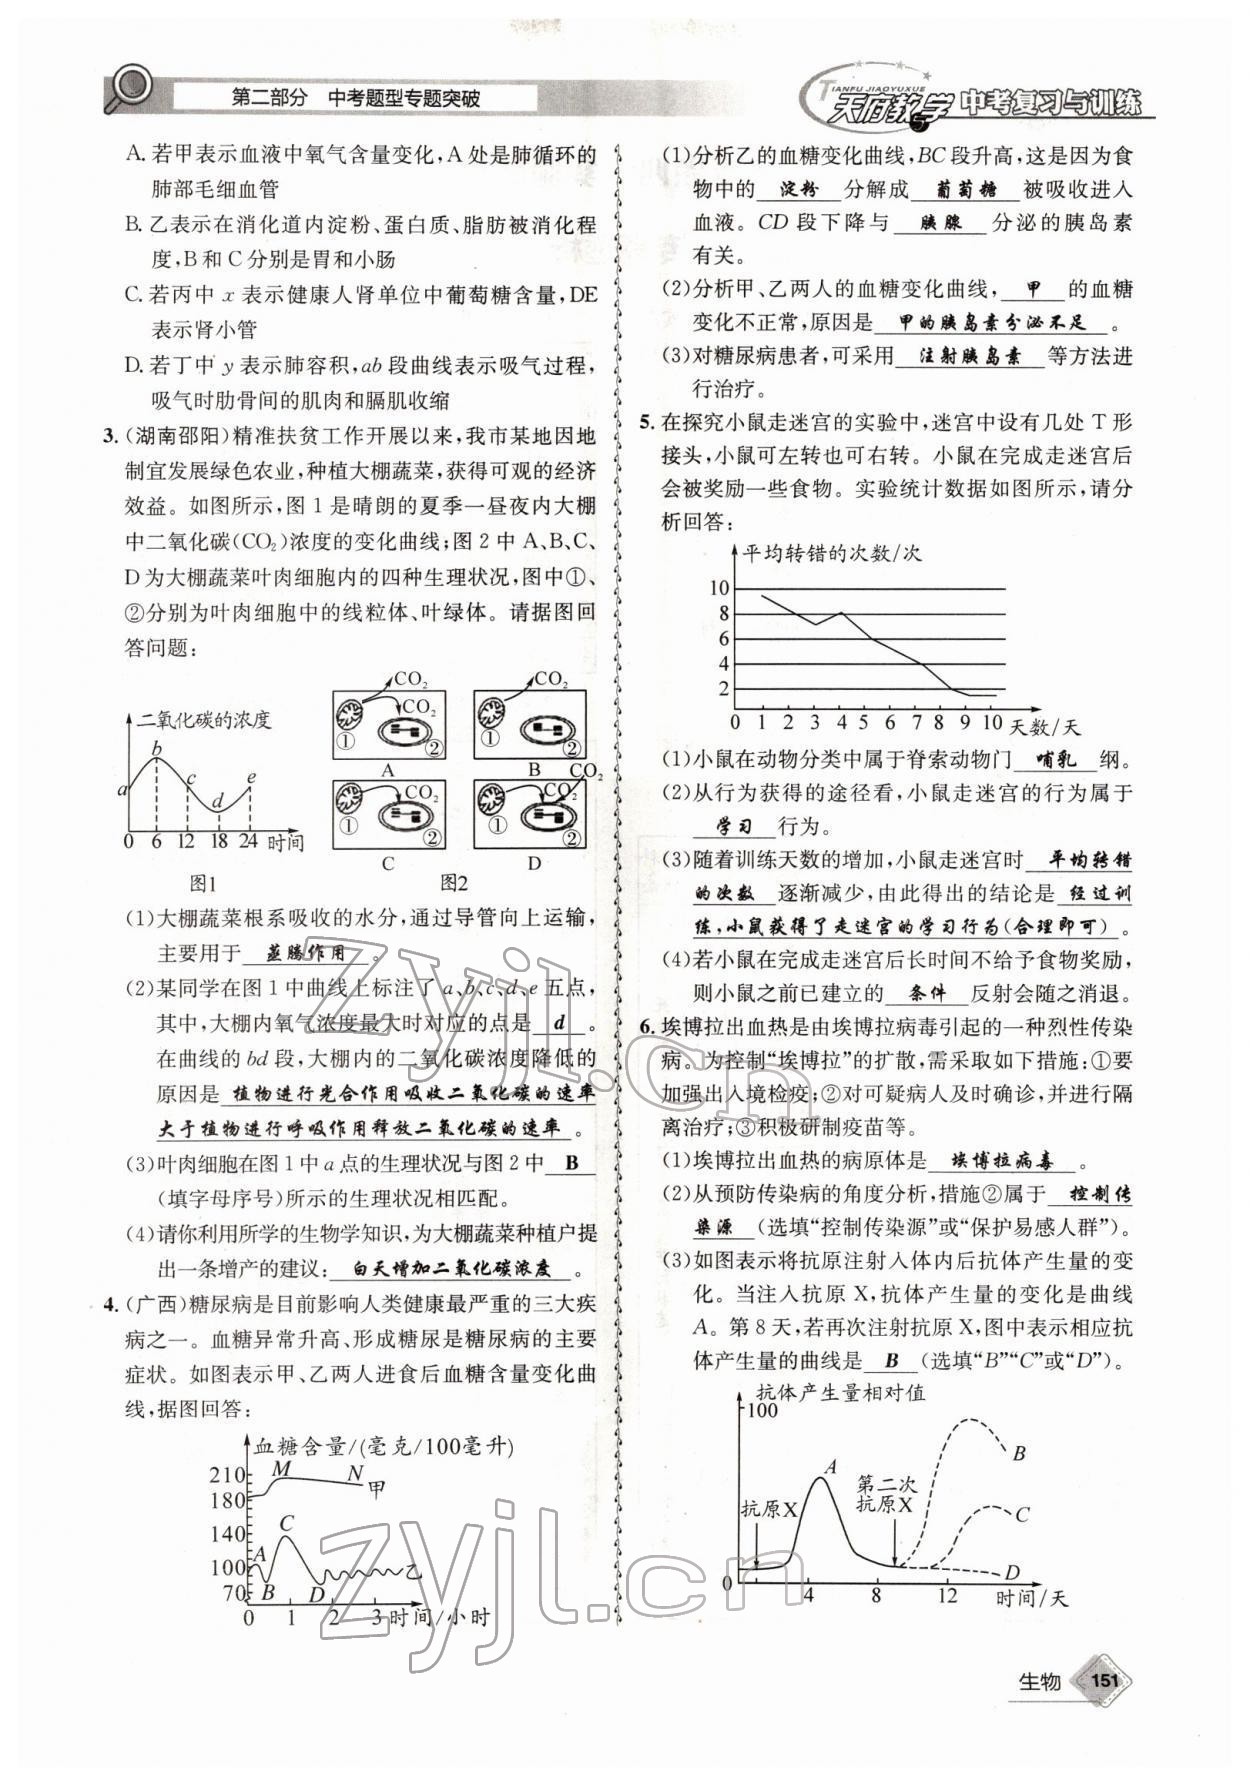 第二部分 中考题型专题突破
TIANFU JIAOYUXUE
天府教学 中考复习与训练
A. 若甲表示血液中氧气含量变化,A 处是肺循环的
肺部毛细血管
B. 乙表示在消化道内淀粉、蛋白质、脂肪被消化程
度,B 和 C 分别是胃和小肠
C. 若丙中 x 表示健康人肾单位中葡萄糖含量,DE
表示肾小管
D. 若丁中 y 表示肺容积,ab 段曲线表示吸气过程,
吸气时肋骨间的肌肉和膈肌收缩
3. (湖南邵阳)精准扶贫工作开展以来,我市某地因地
制宜发展绿色农业,种植大棚蔬菜,获得可观的经济
效益。如图所示,图 1 是晴朗的夏季一昼夜内大棚
中二氧化碳(CO₂)浓度的变化曲线;图 2 中 A、B、C、
D 为大棚蔬菜叶肉细胞内的四种生理状况,图中①、
②分别为叶肉细胞中的线粒体、叶绿体。请据图回
答问题:
二氧化碳的浓度
a b c d e
0 6 12 18 24 时间
图1
CO₂ CO₂ ① ② A
CO₂ ① ② B
CO₂ ① ② C
CO₂ CO₂ ① ② D
图2
(1)大棚蔬菜根系吸收的水分,通过导管向上运输,
主要用于 蒸腾作用 。
(2)某同学在图 1 中曲线上标注了 a、b、c、d、e 五点,
其中,大棚内氧气浓度最大时对应的点是 d 。
在曲线的 bd 段,大棚内的二氧化碳浓度降低的
原因是 植物进行光合作用吸收二氧化碳的速率
大于植物进行呼吸作用释放二氧化碳的速率 。
(3)叶肉细胞在图 1 中 a 点的生理状况与图 2 中 B
(填字母序号)所示的生理状况相匹配。
(4)请你利用所学的生物学知识,为大棚蔬菜种植户提
出一条增产的建议: 白天增加二氧化碳浓度 。
4. (广西)糖尿病是目前影响人类健康最严重的三大疾
病之一。血糖异常升高、形成糖尿是糖尿病的主要
症状。如图表示甲、乙两人进食后血糖含量变化曲
线,据图回答:
血糖含量/(毫克/100毫升)
210 180 140 100 70
M N 甲
A B C D 乙
0 1 2 3 时间/小时
(1)分析乙的血糖变化曲线,BC 段升高,这是因为食
物中的 淀粉 分解成 葡萄糖 被吸收进入
血液。CD 段下降与 胰腺 分泌的胰岛素
有关。
(2)分析甲、乙两人的血糖变化曲线, 甲 的血糖
变化不正常,原因是 甲的胰岛素分泌不足 。
(3)对糖尿病患者,可采用 注射胰岛素 等方法进
行治疗。
5. 在探究小鼠走迷宫的实验中,迷宫中设有几处 T 形
接头,小鼠可左转也可右转。小鼠在完成走迷宫后
会被奖励一些食物。实验统计数据如图所示,请分
析回答:
平均转错的次数/次
10
8
6
4
2
0 1 2 3 4 5 6 7 8 9 10 天数/天
(1)小鼠在动物分类中属于脊索动物门 哺乳 纲。
(2)从行为获得的途径看,小鼠走迷宫的行为属于
学习 行为。
(3)随着训练天数的增加,小鼠走迷宫时 平均转错
的次数 逐渐减少,由此得出的结论是 经过训
练,小鼠获得了走迷宫的学习行为(合理即可) 。
(4)若小鼠在完成走迷宫后长时间不给予食物奖励,
则小鼠之前已建立的 条件 反射会随之消退。
6. 埃博拉出血热是由埃博拉病毒引起的一种烈性传染
病。为控制“埃博拉”的扩散,需采取如下措施:①要
加强出入境检疫;②对可疑病人及时确诊,并进行隔
离治疗;③积极研制疫苗等。
(1)埃博拉出血热的病原体是 埃博拉病毒 。
(2)从预防传染病的角度分析,措施②属于 控制传
染源 (选填“控制传染源”或“保护易感人群”)。
(3)如图表示将抗原注射人体内后抗体产生量的变
化。当注入抗原 X,抗体产生量的变化是曲线
A。第 8 天,若再次注射抗原 X,图中表示相应抗
体产生量的曲线是 B (选填“B”“C”或“D”)。
抗体产生量相对值
100
抗原X
A
第二次
抗原X
B
C
D
0 4 8 12 时间/天
zyjl.cn
zyjl.cn
生物 151